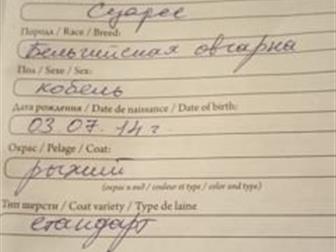 Суарес
Порода / Race / Breed:
Бельгийская овчарка
Пол / Sexe / Sex:
кобель
Дата рождения / Date de naissance / Date of birth:
03.07.14 г.
Окрас / Pelage / Coat:
рыжий
(окрас и вид / couleur et type / color and type)
Тип шерсти / Coat variety / Type de laine
стандарт